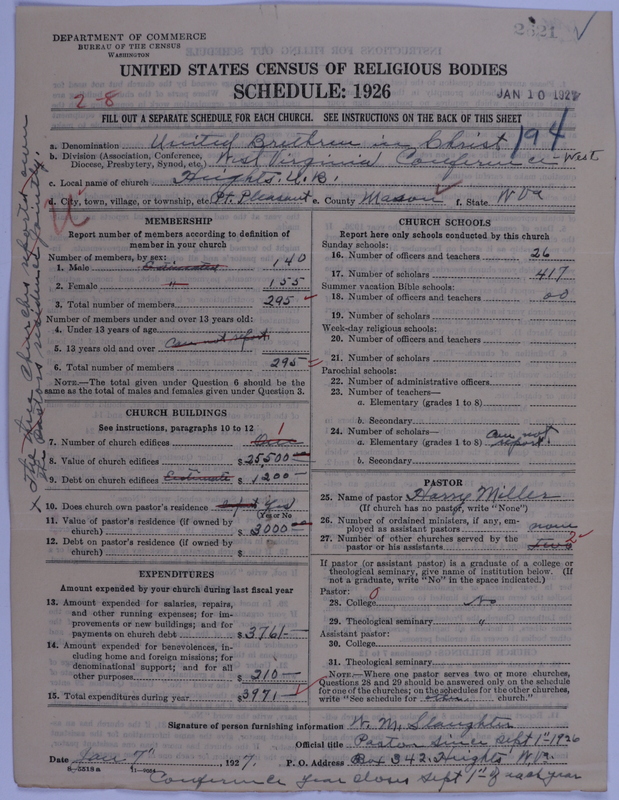 DEPARTMENT OF COMMERCE
BUREAU OF THE CENSUS
WASHINGTON
UNITED STATES CENSUS OF RELIGIOUS BODIES
SCHEDULE: 1926
JAN 10 1927
2-8
FILL OUT A SEPARATE SCHEDULE FOR EACH CHURCH. SEE INSTRUCTIONS ON THE BACK OF THIS SHEET
194
a. Denomination United Brethren in Christ
b. Division (Association, Conference, Diocese, Presbytery, Synod, etc.) West Virginia Conference - West
c. Local name of church Heights U.B.
d. City, town, village, or township, etc. Pt. Pleasant e. County Mason f. State W Va
MEMBERSHIP
Report number of members according to definition of
member in your church
Number of members, by sex:
1. Male Estimated 140
2. Female " 155
3. Total number of members 295
Number of members under and over 13 years old:
4. Under 13 years of age
5. 13 years old and over Can not report
6. Total number of members 295
NOTE.—The total given under Question 6 should be
same as the total of males and females given under Question 3.
CHURCH BUILDINGS
See instructions, paragraphs 10 to 12
7. Number of church edifices One 1
8. Value of church edifices $25,500
9. Debt on church edifices Estimate $1200
10. Does church own pastor's residence Yes
(Yes or No)
11. Value of pastor's residence (if owned by
church) $3000
12. Debt on pastor's residence (if owned by
church) $
EXPENDITURES
Amount expended by your church during last fiscal year
13. Amount expended for salaries, repairs,
and other running expenses; for im-
provements or new buildings; and for
payments on church debt $3761-
14. Amount expended for benevolences, in-
cluding home and foreign missions; for
denominational support; and for all
other purposes $210-
15. Total expenditures during year $3971
CHURCH SCHOOLS
Report here only schools conducted by this church
Sunday schools:
16. Number of officers and teachers 26
17. Number of scholars 417
Summer vacation Bible schools:
18. Number of officers and teachers 00
19. Number of scholars
Week-day religious schools:
20. Number of officers and teachers
21. Number of scholars
Parochial schools:
22. Number of administrative officers
23. Number of teachers—
a. Elementary (grades 1 to 8)
b. Secondary
24. Number of scholars—
a. Elementary (grades 1 to 8) Can not report
b. Secondary
PASTOR
25. Name of pastor Harry Miller
(If church has no pastor, write "None")
26. Number of ordained ministers, if any, em-
ployed as assistant pastors none
27. Number of other churches served by the
pastor or his assistants two 2
If pastor (or assistant pastor) is a graduate of a college or
theological seminary, give name of institution below. (If
not a graduate, write "No" in the space indicated.)
Pastor: 0
28. College No
29. Theological seminary "
Assistant pastor:
30. College
31. Theological seminary
NOTE.—Where one pastor serves two or more churches,
Questions 28 and 29 should be answered only on the schedule
for one of the churches; on the schedules for the other churches,
write "See schedule for other church."
Signature of person furnishing information W. M. Slaughter
Official title Pastor since Sept 1st 1926
Date Jan 7" 1927. P. O. Address Box 342. Heights W.Va.
8-5518a 11-9084
Conference year closes Sept 1st of each year